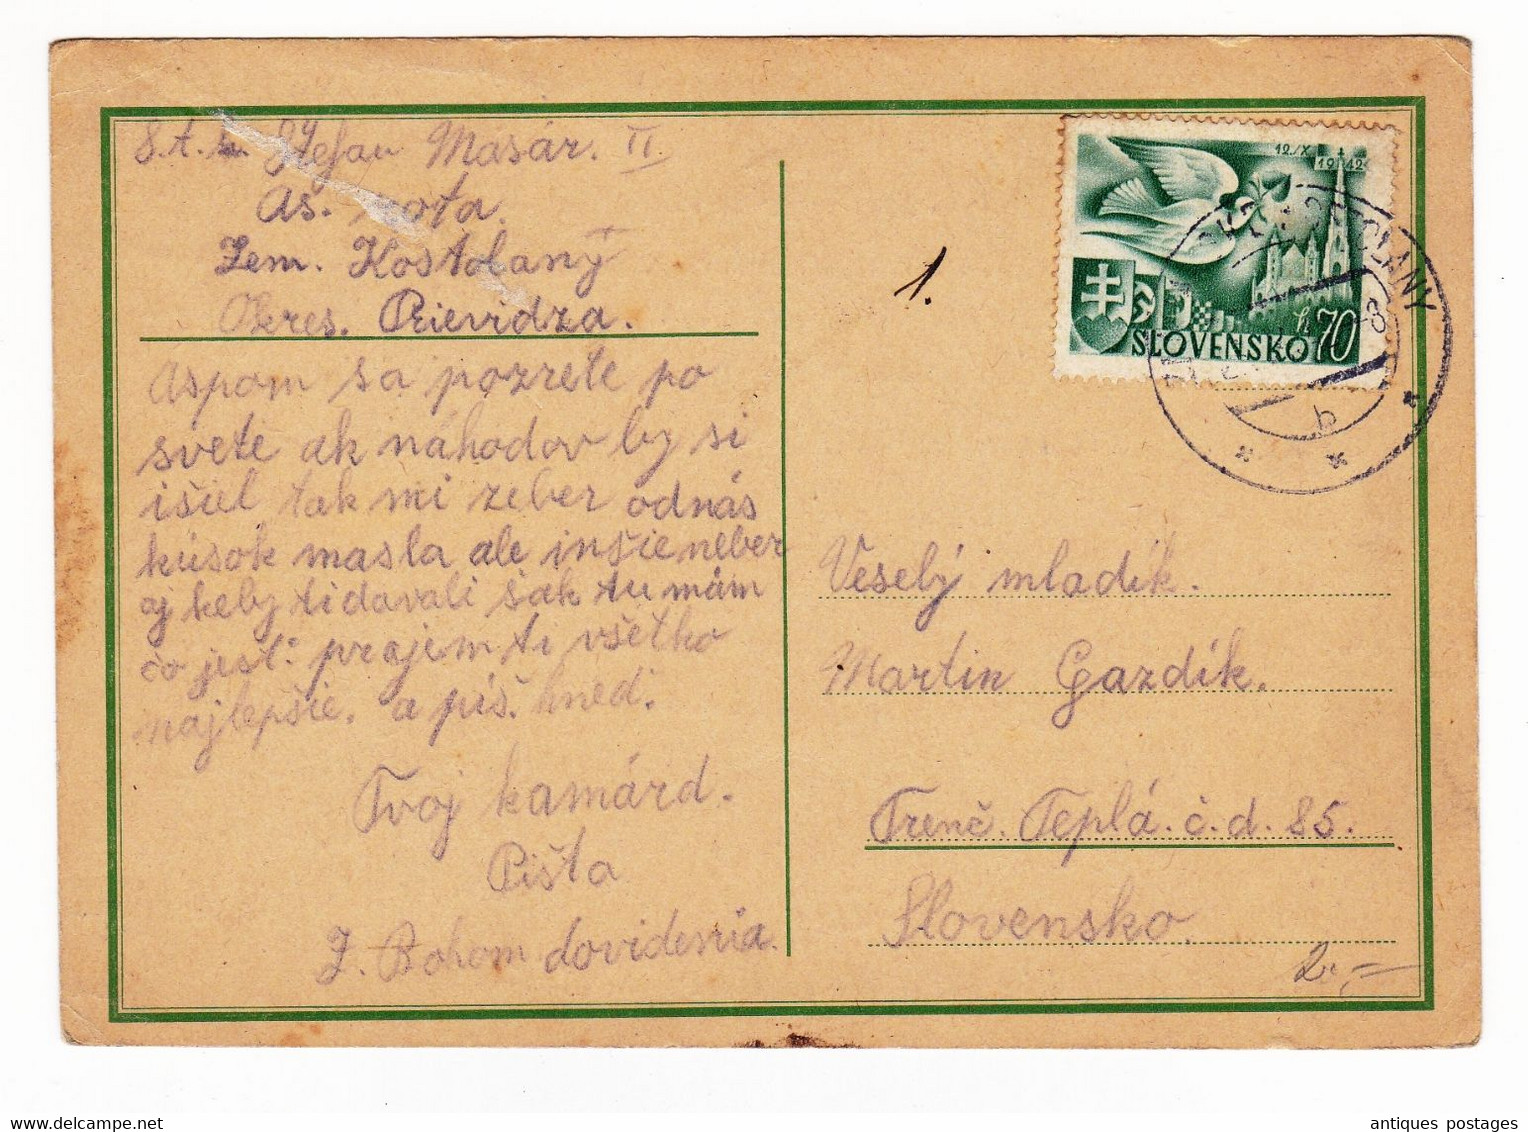 Štefan Masár. II
As. rota.
Zem. Kostolaný
Okres. Prievidza.
Aspom sa pozrete po
svete ak náhodov by si
išiel tak mi zeber odnás
kúsok masla ale inšie neber
aj keby ti davali šak tu mám
čo jest: prajem ti všetko
najlepšie. a píš. hneď.
Tvoj kamárd.
Pišta
Z. Bohom dovidenia.
1.
12./X 1942
SLOVENSKO h 70
b
Veselý mladík.
Martin Gazdík.
Trenč. Teplá. č. d. 85.
Slovensko.
www.delcampe.net
antiques postages